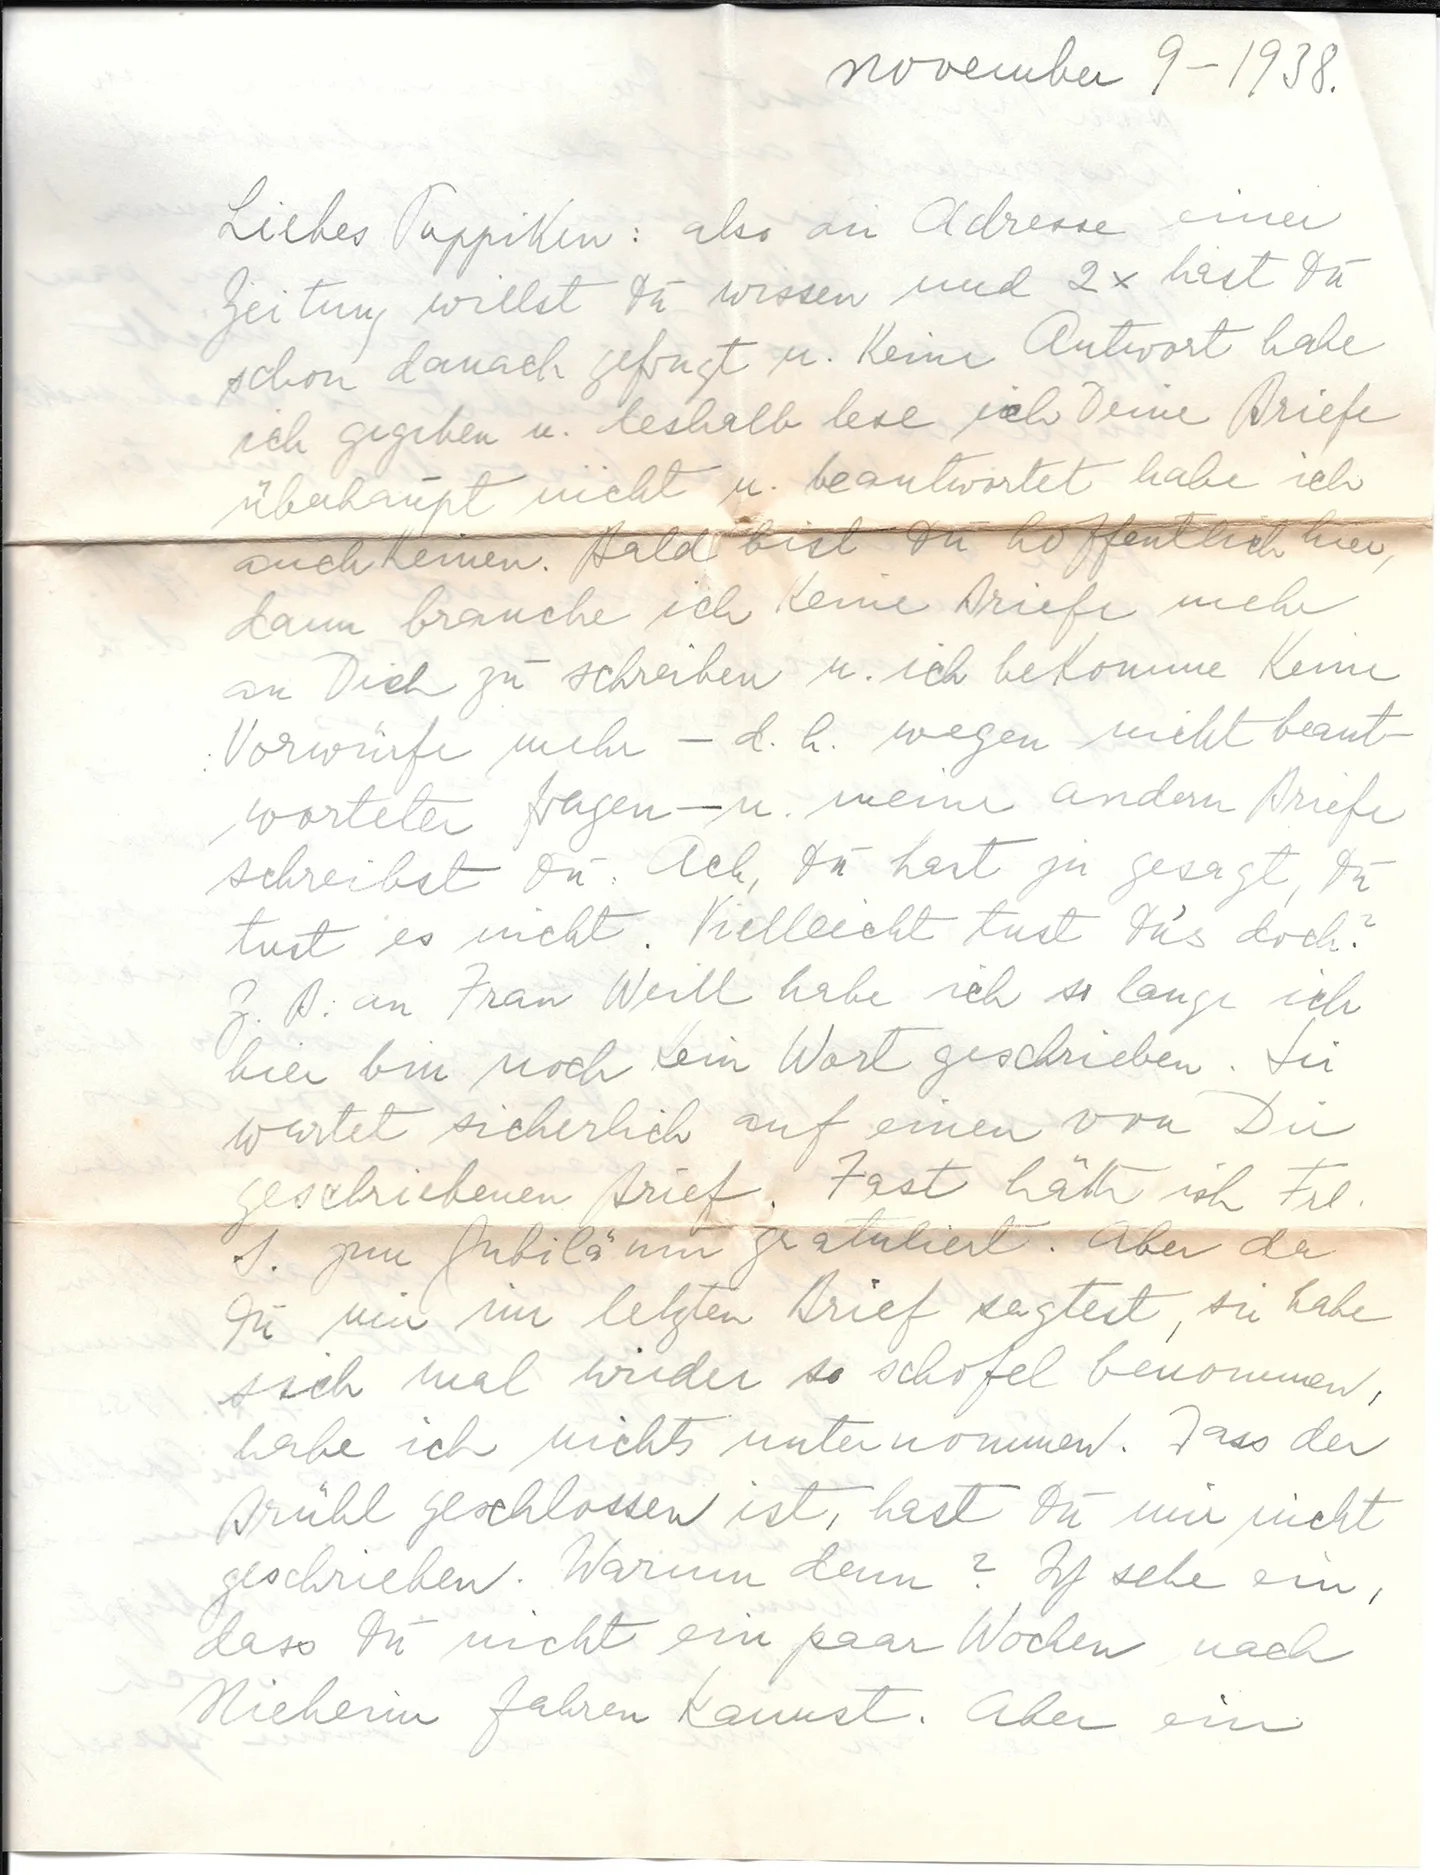 November 9 - 1938.
Liebes Pappiken: also die Adresse einer
Zeitung willst Du wissen und 2x hast Du
schon danach gefragt u. keine Antwort habe
ich gegeben u. deshalb lese ich Deine Briefe
überhaupt nicht u. beantwortet habe ich
auch keinen. Bald bist Du hoffentlich hier,
dann brauche ich keine Briefe mehr
an Dich zu schreiben u. ich bekomme keine
Vorwürfe mehr - d. h. wegen nicht beant-
worteter Fragen - u. meine andern Briefe
schreibst Du. Ach, Du hast ja gesagt, Du
tust es nicht. Vielleicht tust Du's doch?
Z. B. an Frau Weill habe ich so lange ich
hier bin noch kein Wort geschrieben. Sie
wartet sicherlich auf einen von Dir
geschriebenen Brief. Fast hätte ich Frl.
S. zum Jubiläum gratuliert. Aber da
Du mir im letzten Brief sagtest, sie habe
sich mal wieder so schofel benommen,
habe ich nichts unternommen. Dass der
Brühl geschlossen ist, hast Du mir nicht
geschrieben. Warum denn? Ich sehe ein,
dass Du nicht ein paar Wochen nach
Nieheim fahren kannst. Aber ein